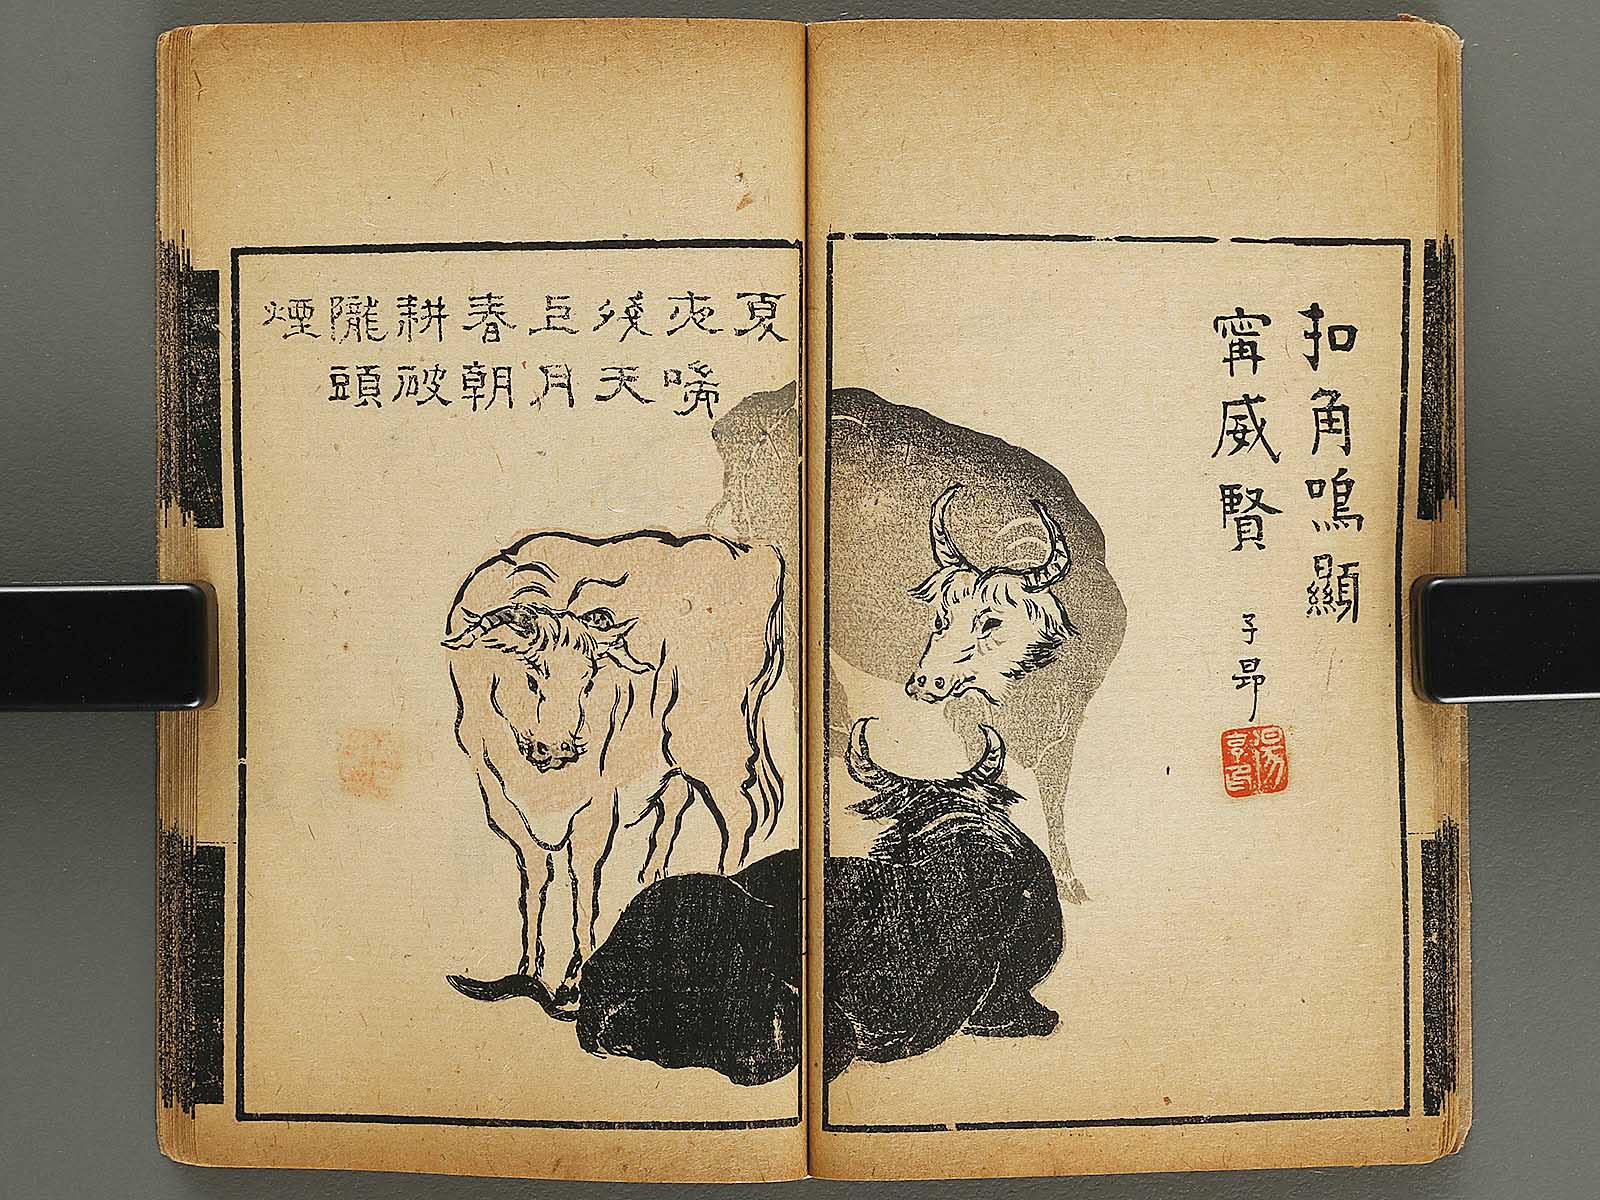 扣角鳴顯
甯威賢
子昂
夏
夜唏
殘天
上月
春朝
耕破
隴頭
煙